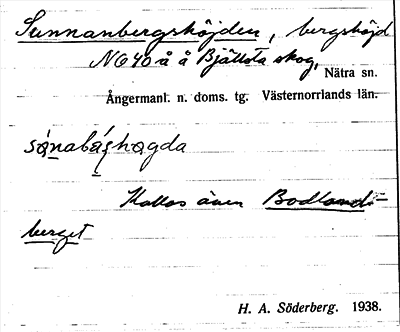 Sunnanbergshöjden, bergshöjd
NO 40 å å Bjällsta skog, Nätra sn.
Ångermanl. n. doms. tg. Västernorrlands län.
Kallas även Bodlands-
berget
H. A. Söderberg. 1938.